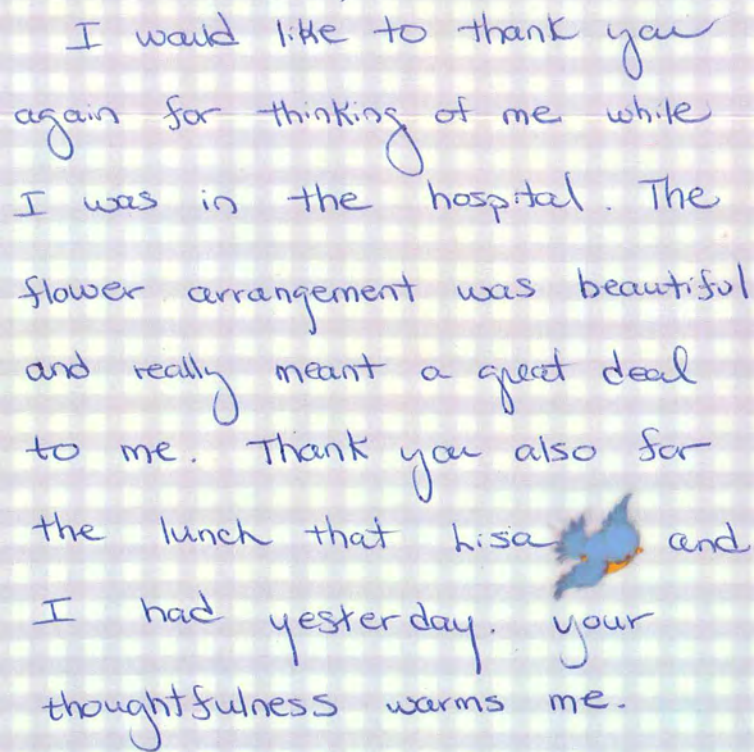 I would like to thank you
again for thinking of me while
I was in the hospital. The
flower arrangement was beautiful
and really meant a great deal
to me. Thank you also for
the lunch that Lisa and
I had yesterday. your
thoughtfulness warms me.